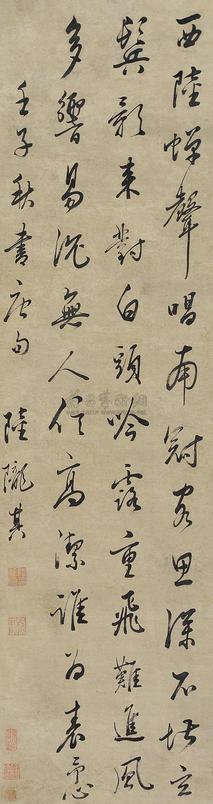 西陸蟬聲唱南冠客思深不堪玄
鬢影來對白頭吟露重飛難進風
多響易沉無人信高潔誰為表予心
壬子秋書唐句 陸隴其